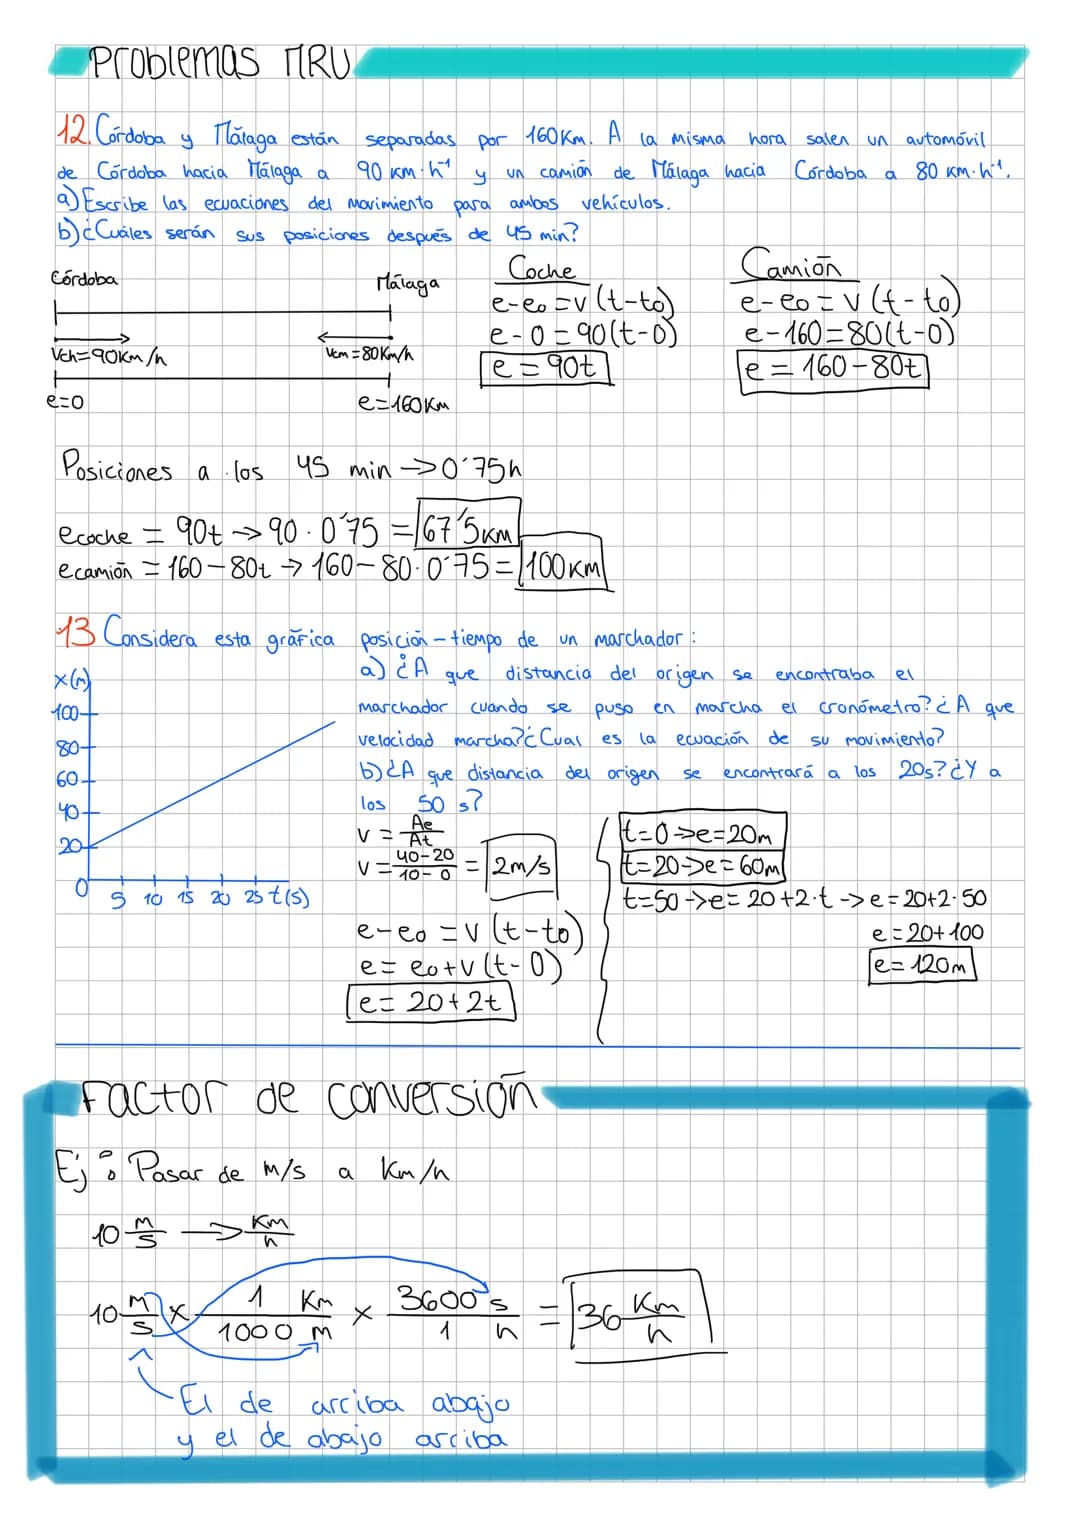 Problemas MRU
12. Córdoba y Málaga están separadas por 160Km. A la misma hora salen un automóvil
de Córdoba hacia Málaga a 90 km·h⁻¹ y un camión de Málaga hacia Córdoba a 80 km·h⁻¹.
a) Escribe las ecuaciones del movimiento para ambos vehículos.
b) ¿Cuáles serán sus posiciones después de 45 min?
Córdoba Málaga
Vch=90Km/h Vcm=80Km/h
e=0 e=160Km
Coche
e-e₀=v(t-t₀)
e-0=90(t-0)
e=90t
Camión
e-e₀=v(t-t₀)
e-160=80(t-0)
e=160-80t
Posiciones a los 45 min →0'75h
ecoche = 90t → 90·0'75 = 67'5Km
ecamión = 160-80t → 160-80·0'75 = 100Km
13 Considera esta gráfica posición-tiempo de un marchador:
a) ¿A que distancia del origen se encontraba el
marchador cuando se puso en marcha el cronómetro? ¿A que
velocidad marcha? ¿Cual es la ecuación de su movimiento?
b) ¿A que distancia del origen se encontrará a los 20s? ¿Y a
los 50 s?
x(m)
100
80
60
40
20
0
5 10 15 20 25 t(s)
v = Ae/At
v = 40-20/10-0 = 2m/s
e-e₀=v(t-t₀)
e=e₀+v(t-0)
e=20+2t
t=0→e=20m
t=20→e=60m
t=50→e=20+2·t→e=20+2·50
e=20+100
e=120m
Factor de conversión
Ej: Pasar de m/s a Km/h
10 m/s → Km/h
10 m/s x 1 Km/1000 m x 3600 s/1 h = 36 Km/h
El de arriba abajo
y el de abajo arriba